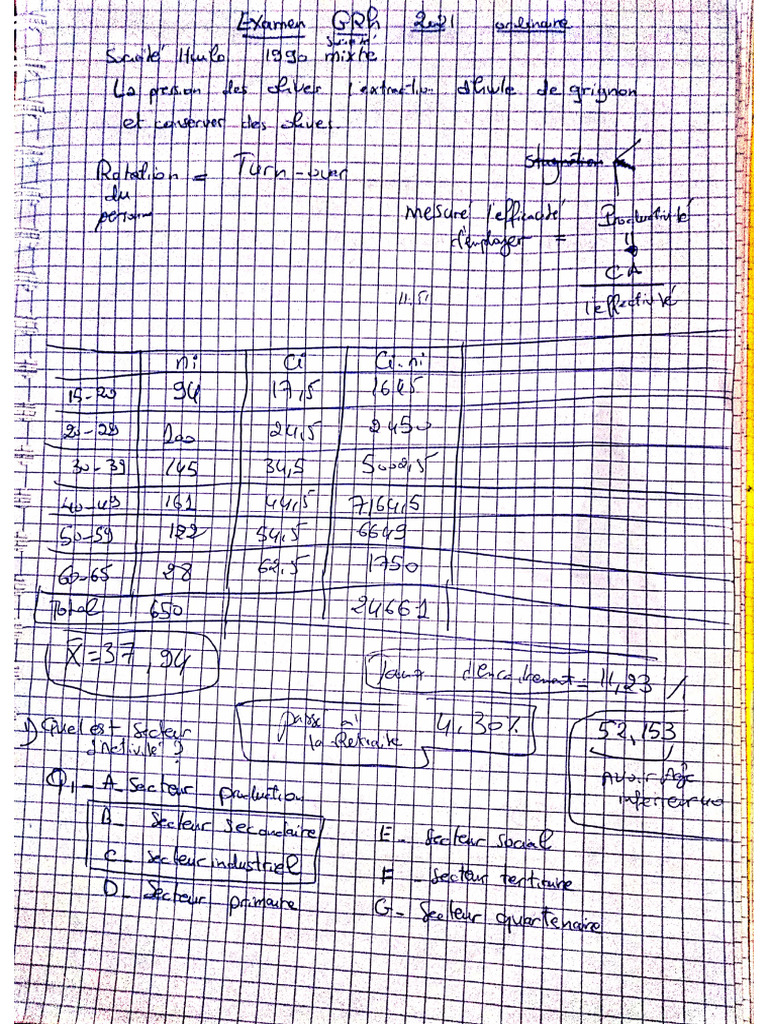 Examen GRh 2021 ordinaire
Société Huilo 1990 société mixte
La pression des olives l'extraction d'huile de grignon
et conserver des olives.
Rotation du person = Turn-over
Stagnation
mesuré l'efficacité d'employer = Productivité
CA
l'effectivité
11.51
ni Ci Ci.ni
15-20 94 17,5 1645
20-29 100 24,5 2450
30-39 145 34,5 5002,5
40-49 161 44,5 7164,5
50-59 122 54,5 6649
60-65 28 62.5 1750
Total 650 24661
X̄ = 37,94
Taux d'encadrement = 11,23 %
1) Quel est secteur d'activité ?
parx à la Retraite
4,30%
52,153
Avoir Age inferieur 40
Q1 - A - Secteur production
B - Secteur Secondaire
C - Secteur industriel
D - Secteur primaire
E - Secteur social
F - Secteur tertiaire
G - Secteur quartenaire